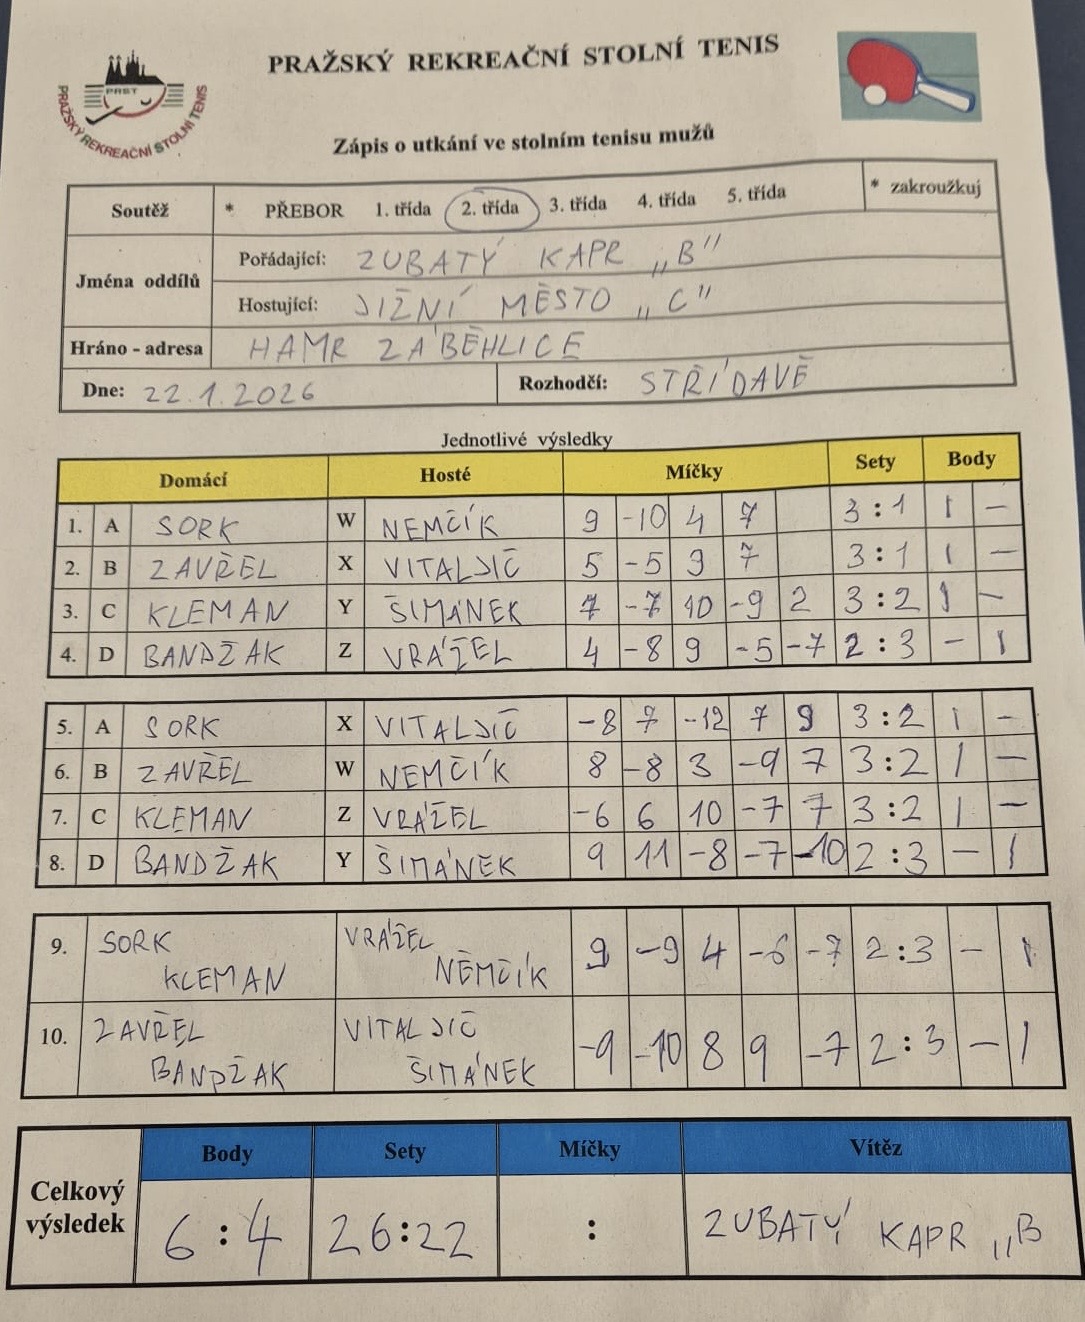 PRAŽSKÝ REKREAČNÍ STOLNÍ TENIS
PRST
PRAŽSKÝ REKREAČNÍ STOLNÍ TENIS
Zápis o utkání ve stolním tenisu mužů
Soutěž * PŘEBOR 1. třída 2. třída 3. třída 4. třída 5. třída * zakroužkuj
Jména oddílů
Pořádající: ZUBATÝ KAPR „B"
Hostující: JIŽNÍ MĚSTO „C"
Hráno - adresa HAMR ZÁBĚHLICE
Dne: 22.1.2026 Rozhodčí: STŘÍDAVĚ
Jednotlivé výsledky
Domácí Hosté Míčky Sety Body
1. A SORK W NEMČÍK 9 -10 4 7 3 : 1 1 -
2. B ZAVŘEL X VITALJIČ 5 -5 9 7 3 : 1 1 -
3. C KLEMAN Y ŠIMÁNEK 7 -7 10 -9 2 3 : 2 1 -
4. D BANDŽAK Z VRÁŽEL 4 -8 9 -5 -7 2 : 3 - 1
5. A SORK X VITALJIČ -8 7 -12 7 9 3 : 2 1 -
6. B ZAVŘEL W NEMČÍK 8 -8 3 -9 7 3 : 2 1 -
7. C KLEMAN Z VRÁŽEL -6 6 10 -7 7 3 : 2 1 -
8. D BANDŽAK Y ŠIMÁNEK 9 11 -8 -7 -10 2 : 3 - 1
9. SORK KLEMAN VRÁŽEL NĚMČÍK 9 -9 4 -6 -7 2 : 3 - 1
10. ZAVŘEL BANDŽAK VITALJIČ ŠIMÁNEK -9 -10 8 9 -7 2 : 3 - 1
Celkový výsledek
Body Sety Míčky Vítěz
6 : 4 26:22 : ZUBATÝ KAPR „B